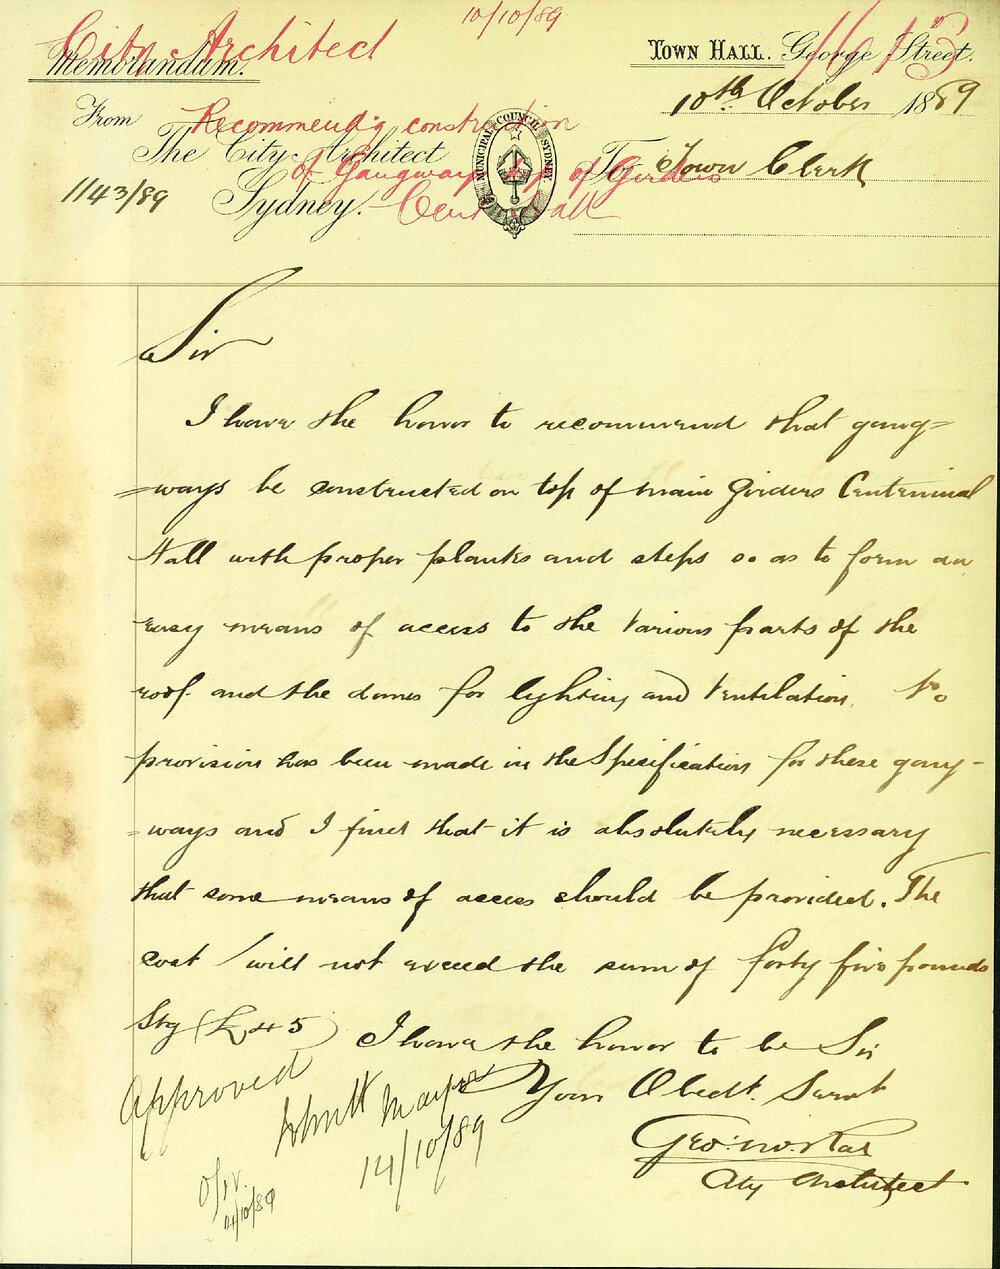 10/10/89
City Architect
1613
Memorandum.
Town Hall. George Street.
10th October 1889
From
Recommendg construction
The City Architect
of Gangways top of Girders
To Town Clerk
1143/89
Sydney.
Cent Hall
MUNICIPAL COUNCIL SYDNEY
Sir
I have the honor to recommend that gang=
=ways be constructed on top of main Girders Centennial
Hall with proper planks and steps so as to form an
easy means of access to the various parts of the
roof and the domes for lighting and Ventilation. No
provision has been made in the Specification for these gang-
=ways and I find that it is absolutely necessary
that some means of access should be provided. The
cost will not exceed the sum of forty five pounds
Stg (£45)
I have the honor to be Sir
Approved
Your Obedt. Servt
John H Mayor
14/10/89
Geo:
City Architect
4/10/89